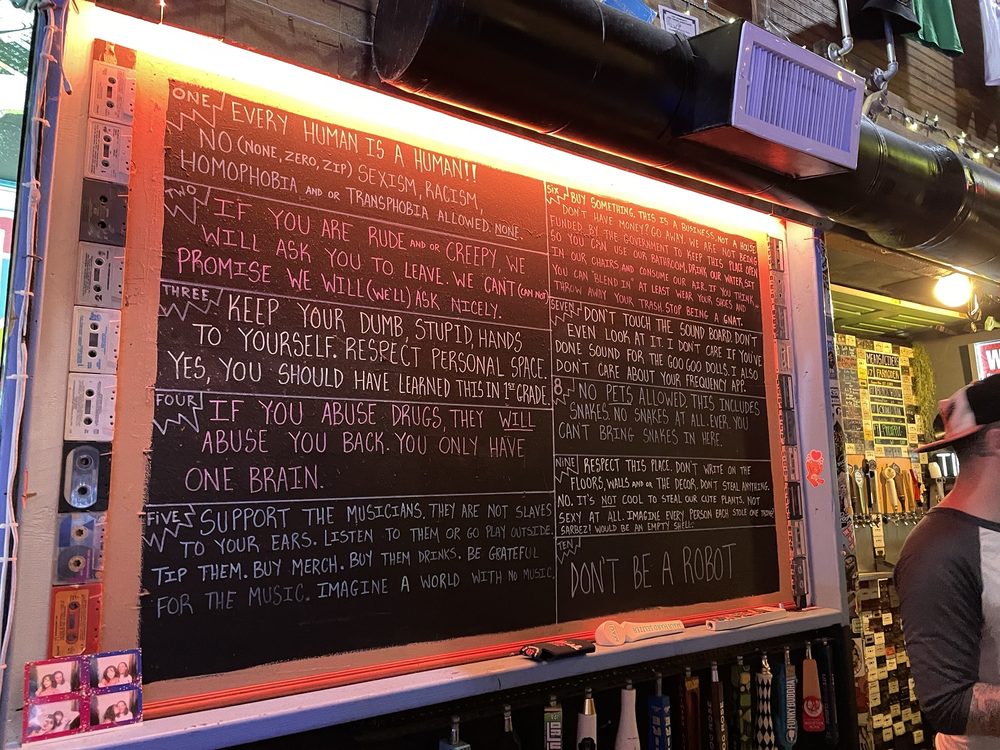 ONE
EVERY HUMAN IS A HUMAN!!
NO (NONE, ZERO, ZIP) SEXISM, RACISM,
HOMOPHOBIA AND OR TRANSPHOBIA ALLOWED. NONE.
TWO
IF YOU ARE RUDE AND OR CREEPY, WE
WILL ASK YOU TO LEAVE. WE CAN'T (CAN NOT)
PROMISE WE WILL (WE'LL) ASK NICELY.
THREE
KEEP YOUR DUMB, STUPID, HANDS
TO YOURSELF. RESPECT PERSONAL SPACE.
YES, YOU SHOULD HAVE LEARNED THIS IN 1ST GRADE.
FOUR
IF YOU ABUSE DRUGS, THEY WILL
ABUSE YOU BACK. YOU ONLY HAVE
ONE BRAIN.
FIVE
SUPPORT THE MUSICIANS, THEY ARE NOT SLAVES
TO YOUR EARS. LISTEN TO THEM OR GO PLAY OUTSIDE.
TIP THEM. BUY MERCH. BUY THEM DRINKS. BE GRATEFUL
FOR THE MUSIC. IMAGINE A WORLD WITH NO MUSIC.
SIX
BUY SOMETHING. THIS IS A BUSINESS. NOT A HOUSE
DON'T HAVE MONEY? GO AWAY. WE ARE NOT BEING
FUNDED BY THE GOVERNMENT TO KEEP THIS PLACE OPEN
SO YOU CAN USE OUR BATHROOM, DRINK OUR WATER, SIT
IN OUR CHAIRS, AND CONSUME OUR AIR. IF YOU THINK
YOU CAN "BLEND IN" AT LEAST WEAR YOUR SHOES AND
THROW AWAY YOUR TRASH. STOP BEING A GNAT.
SEVEN
DON'T TOUCH THE SOUND BOARD. DON'T
EVEN LOOK AT IT. I DON'T CARE IF YOU'VE
DONE SOUND FOR THE GOO GOO DOLLS. I ALSO
DON'T CARE ABOUT YOUR FREQUENCY APP.
8.
NO PETS ALLOWED. THIS INCLUDES
SNAKES. NO SNAKES AT ALL. EVER. YOU
CAN'T BRING SNAKES IN HERE.
NINE
RESPECT THIS PLACE. DON'T WRITE ON THE
FLOORS, WALLS AND OR THE DECOR. DON'T STEAL ANYTHING.
NO. IT'S NOT COOL TO STEAL OUR CUTE PLANTS. NOT
SEXY AT ALL. IMAGINE EVERY PERSON EACH STOLE ONE THING?
SARBEZ! WOULD BE AN EMPTY SHELL.
TEN
DON'T BE A ROBOT
FUNKY BUDDHA